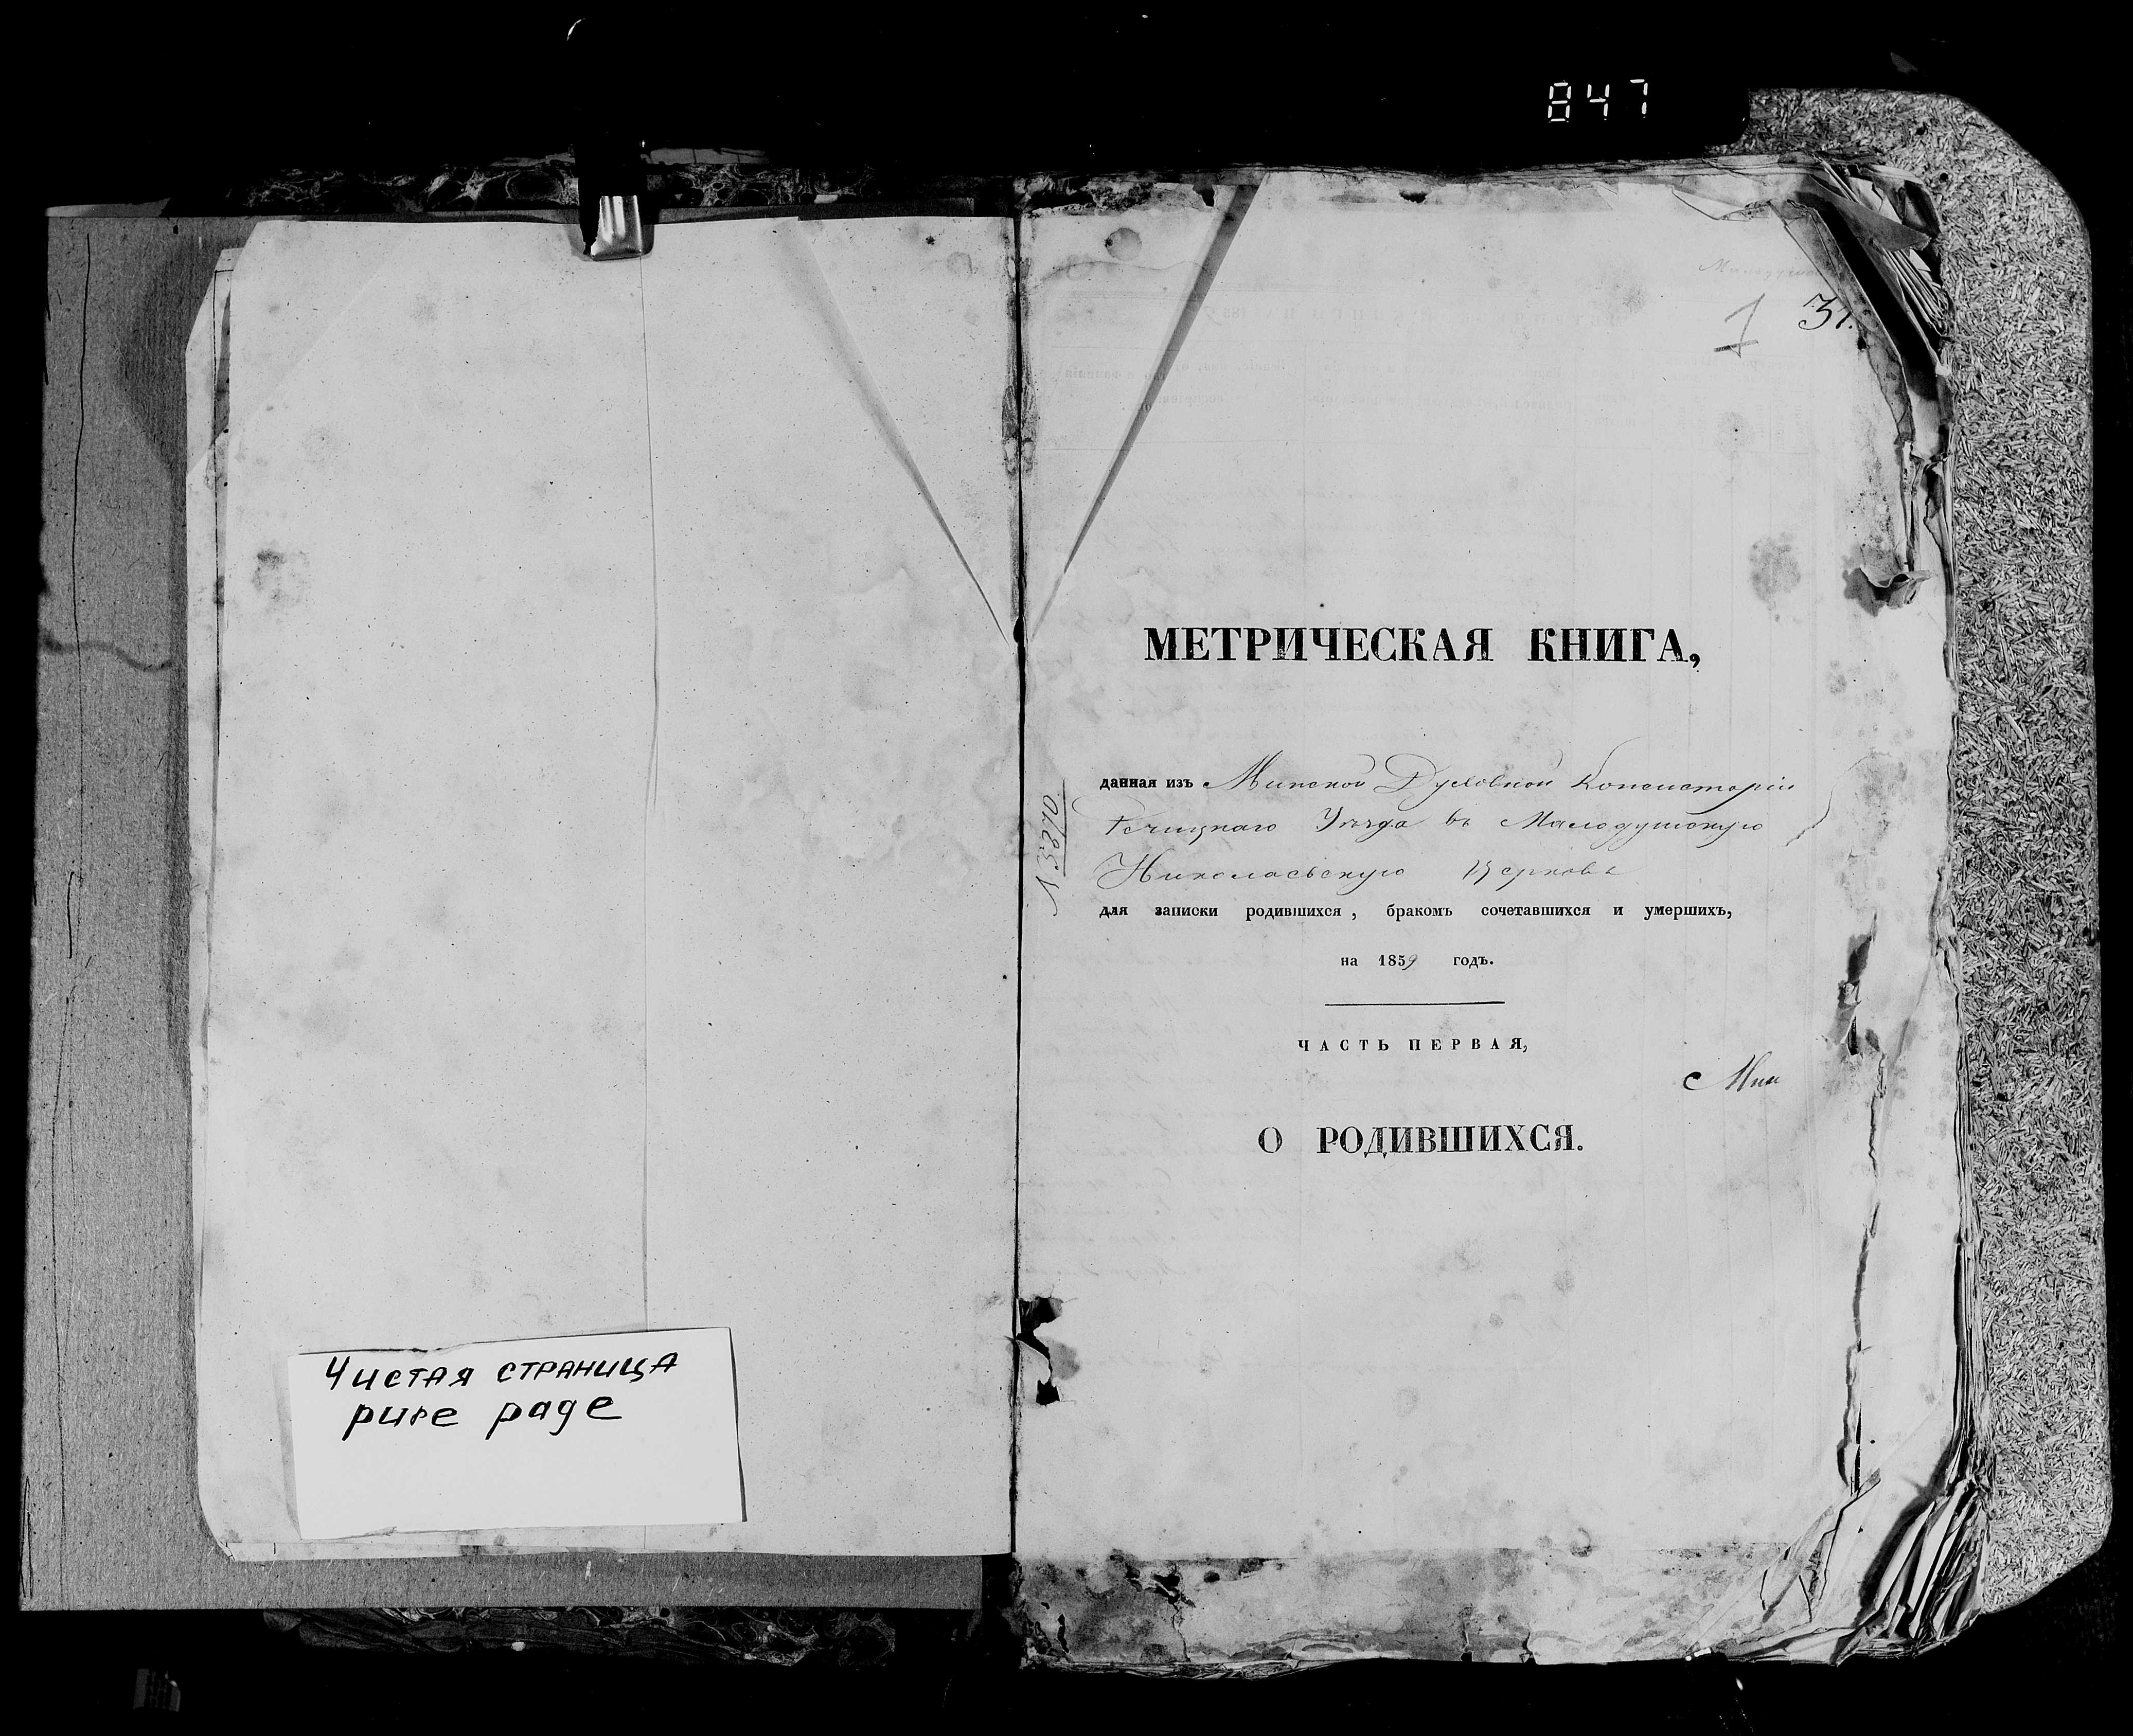 847
1 31.
МЕТРИЧЕСКАЯ КНИГА,
данная изъ Минской Духовной Консисторіи
Речицкаго Уѣзда въ Малодушскую
Николаевскую Церковь
для записки родившихся, бракомъ сочетавшихся и умершихъ,
на 1859 годъ.
ЧАСТЬ ПЕРВАЯ,
Мин
О РОДИВШИХСЯ.
N 5870
Чистая страница
pure page